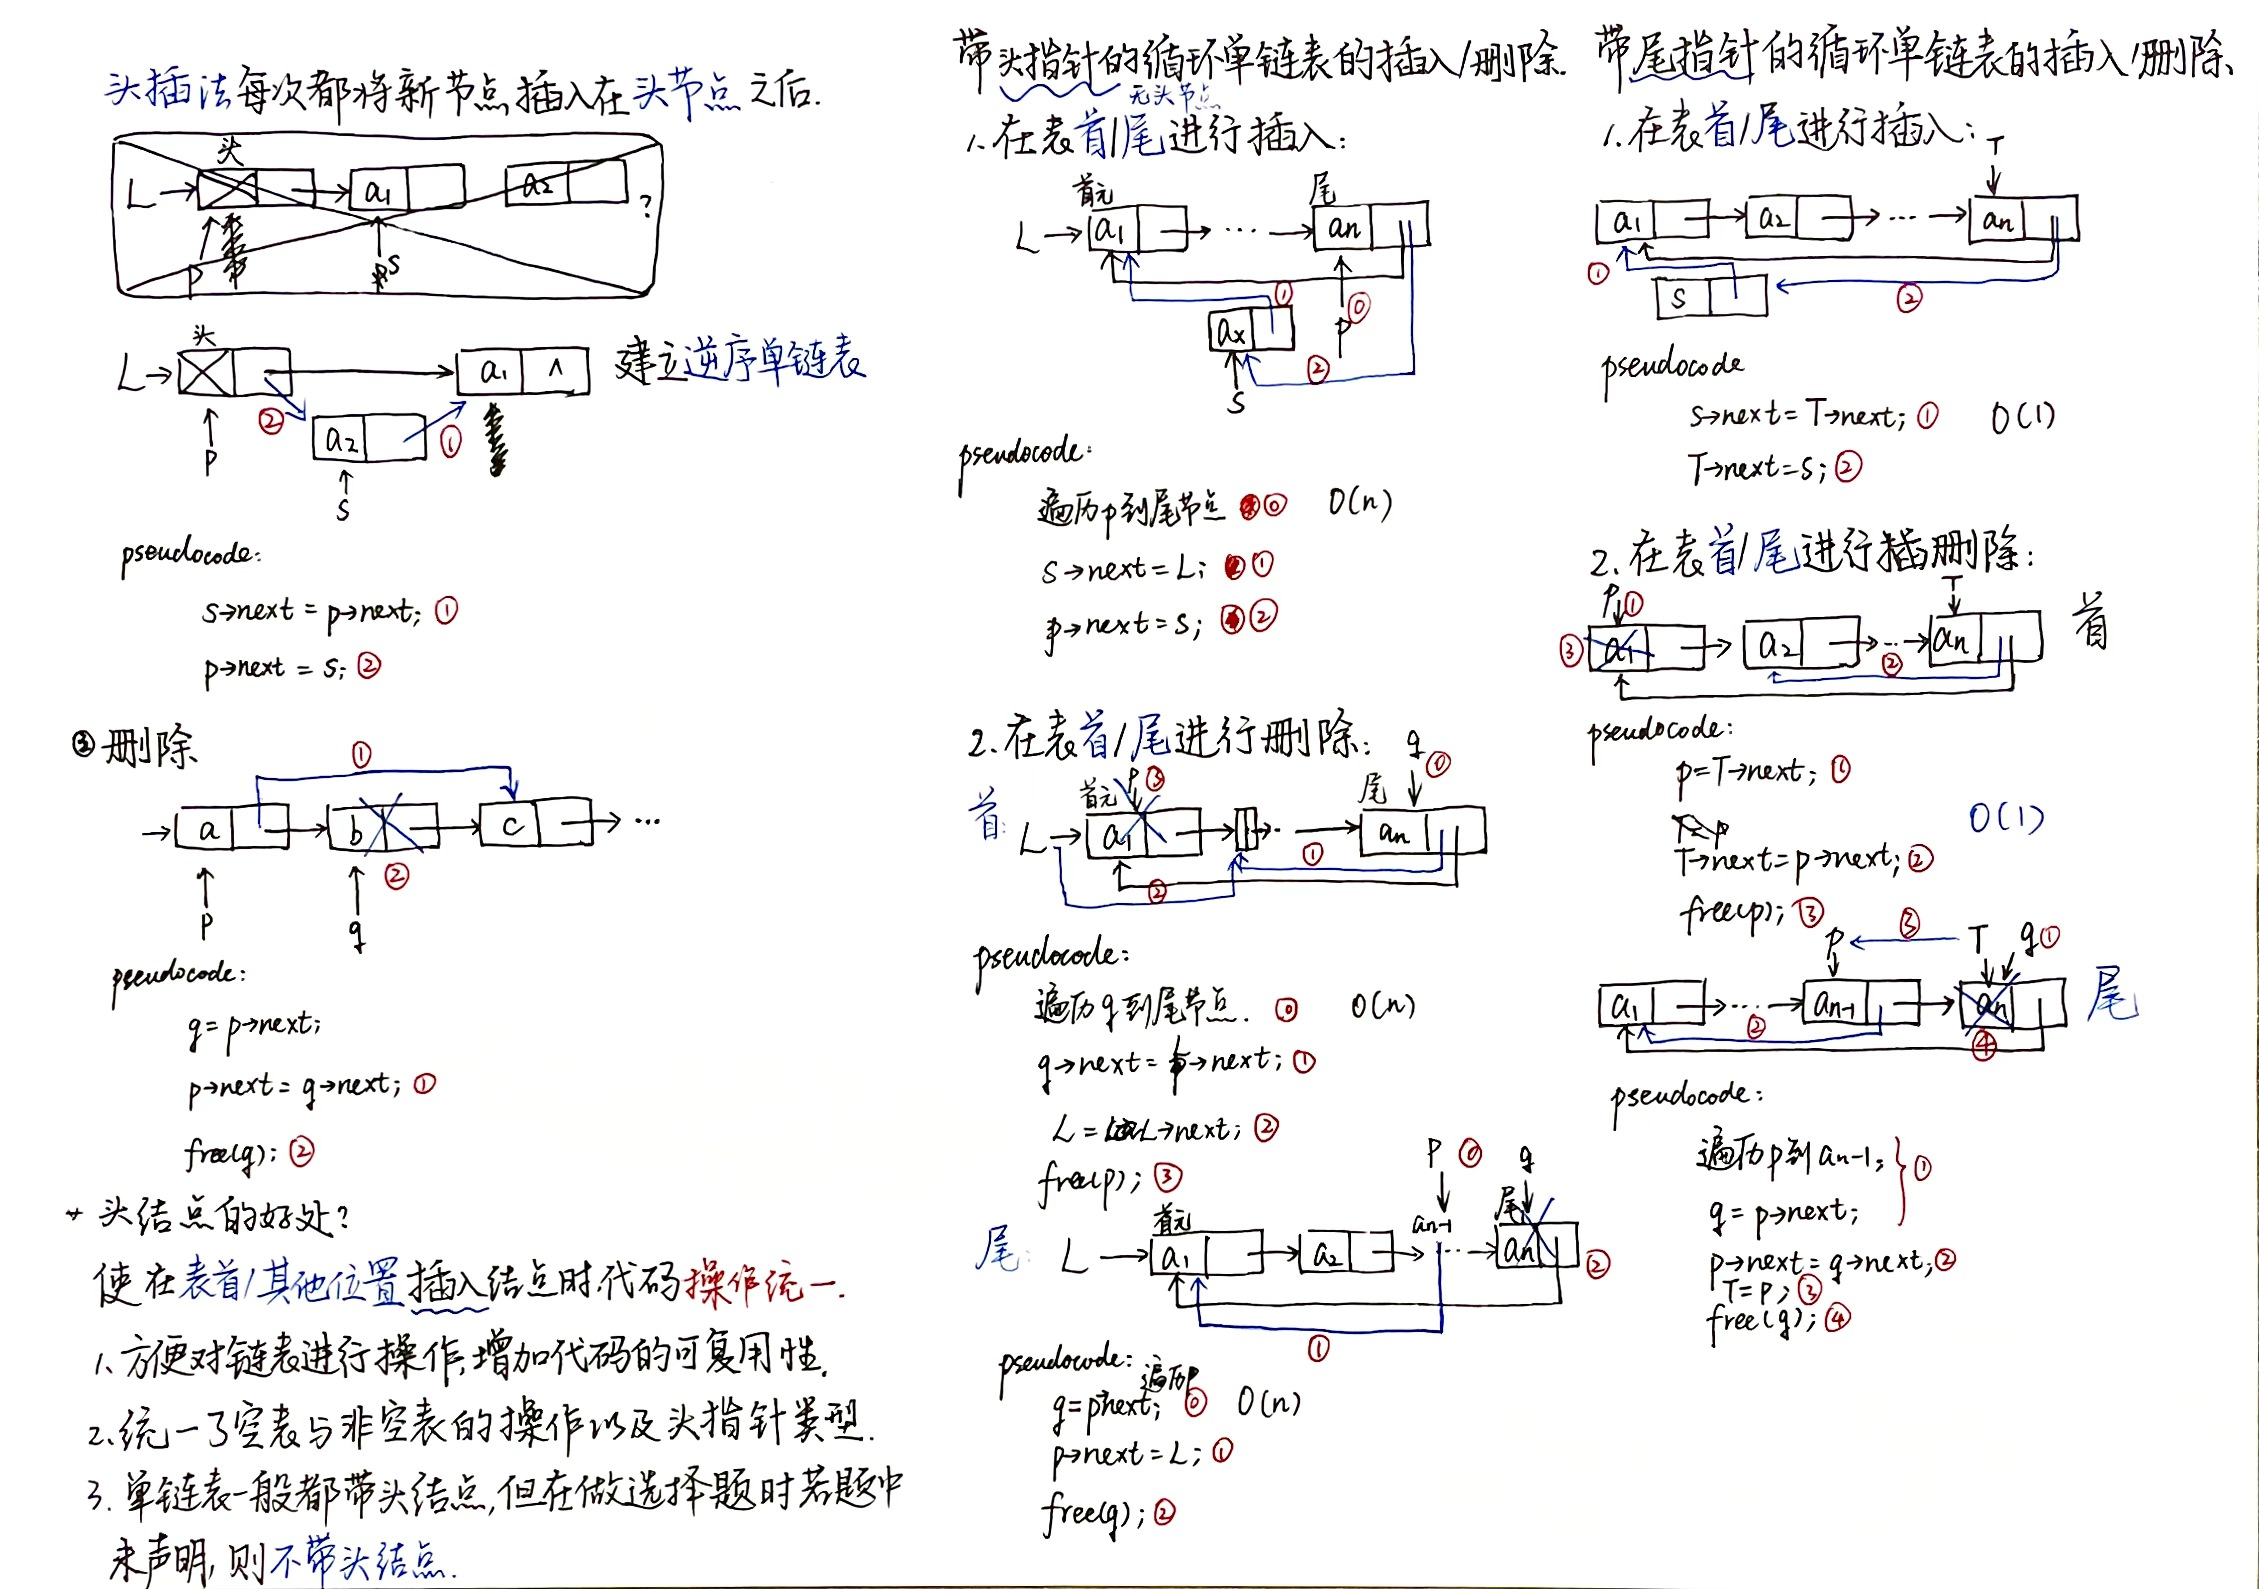 头插法每次都将新节点插入在头节点之后.
头
L→ a₁ a₂ ?
p s
头
L→ a₁ ∧ 建立逆序单链表
② a₂ ①
p
s
pseudocode:
s→next = p→next; ①
p→next = s; ②
③ 删除
①
→ a b c → ...
②
p q
pseudocode:
q = p→next;
p→next = q→next; ①
free(q); ②
头结点的好处?
使在表首/其他位置插入结点时代码操作统一.
1. 方便对链表进行操作,增加代码的可复用性.
2. 统一了空表与非空表的操作以及头指针类型.
3. 单链表一般都带头结点,但在做选择题时若题中
未声明,则不带头结点.
带头指针的循环单链表的插入/删除.
无头节点
1. 在表首/尾进行插入:
首元 尾
L→ a₁ → ... → an
① ⓪
ax p
②
s
pseudocode:
遍历p到尾节点 ⓪ O(n)
s→next = L; ①
p→next = s; ②
2. 在表首/尾进行删除: q ⓪
首: 首元 p ③ 尾
L→ a₁ → ... → an
①
②
pseudocode:
遍历q到尾节点. ⓪ O(n)
q→next = p→next; ①
L = L→next; ②
free(p); ③
p ⓪ q
尾: 首元 an-1 尾
L → a₁ → a₂ → ... → an ②
①
pseudocode: 遍历p
q=p→next; ⓪ O(n)
p→next = L; ①
free(q); ②
带尾指针的循环单链表的插入/删除
1. 在表首/尾进行插入: T
a₁ → a₂ → ... → an
① s ②
pseudocode
s→next = T→next; ① O(1)
T→next = s; ②
2. 在表首/尾进行删除:
p ① T
③ a₁ → a₂ → ... → an 首
②
pseudocode:
p = T→next; ①
O(1)
T→next = p→next; ②
free(p); ③
p ③ T q ①
a₁ → ... → an-1 → an 尾
② ④
pseudocode:
遍历p到an-1; ①
q = p→next;
p→next = q→next; ②
T = p; ③
free(q); ④